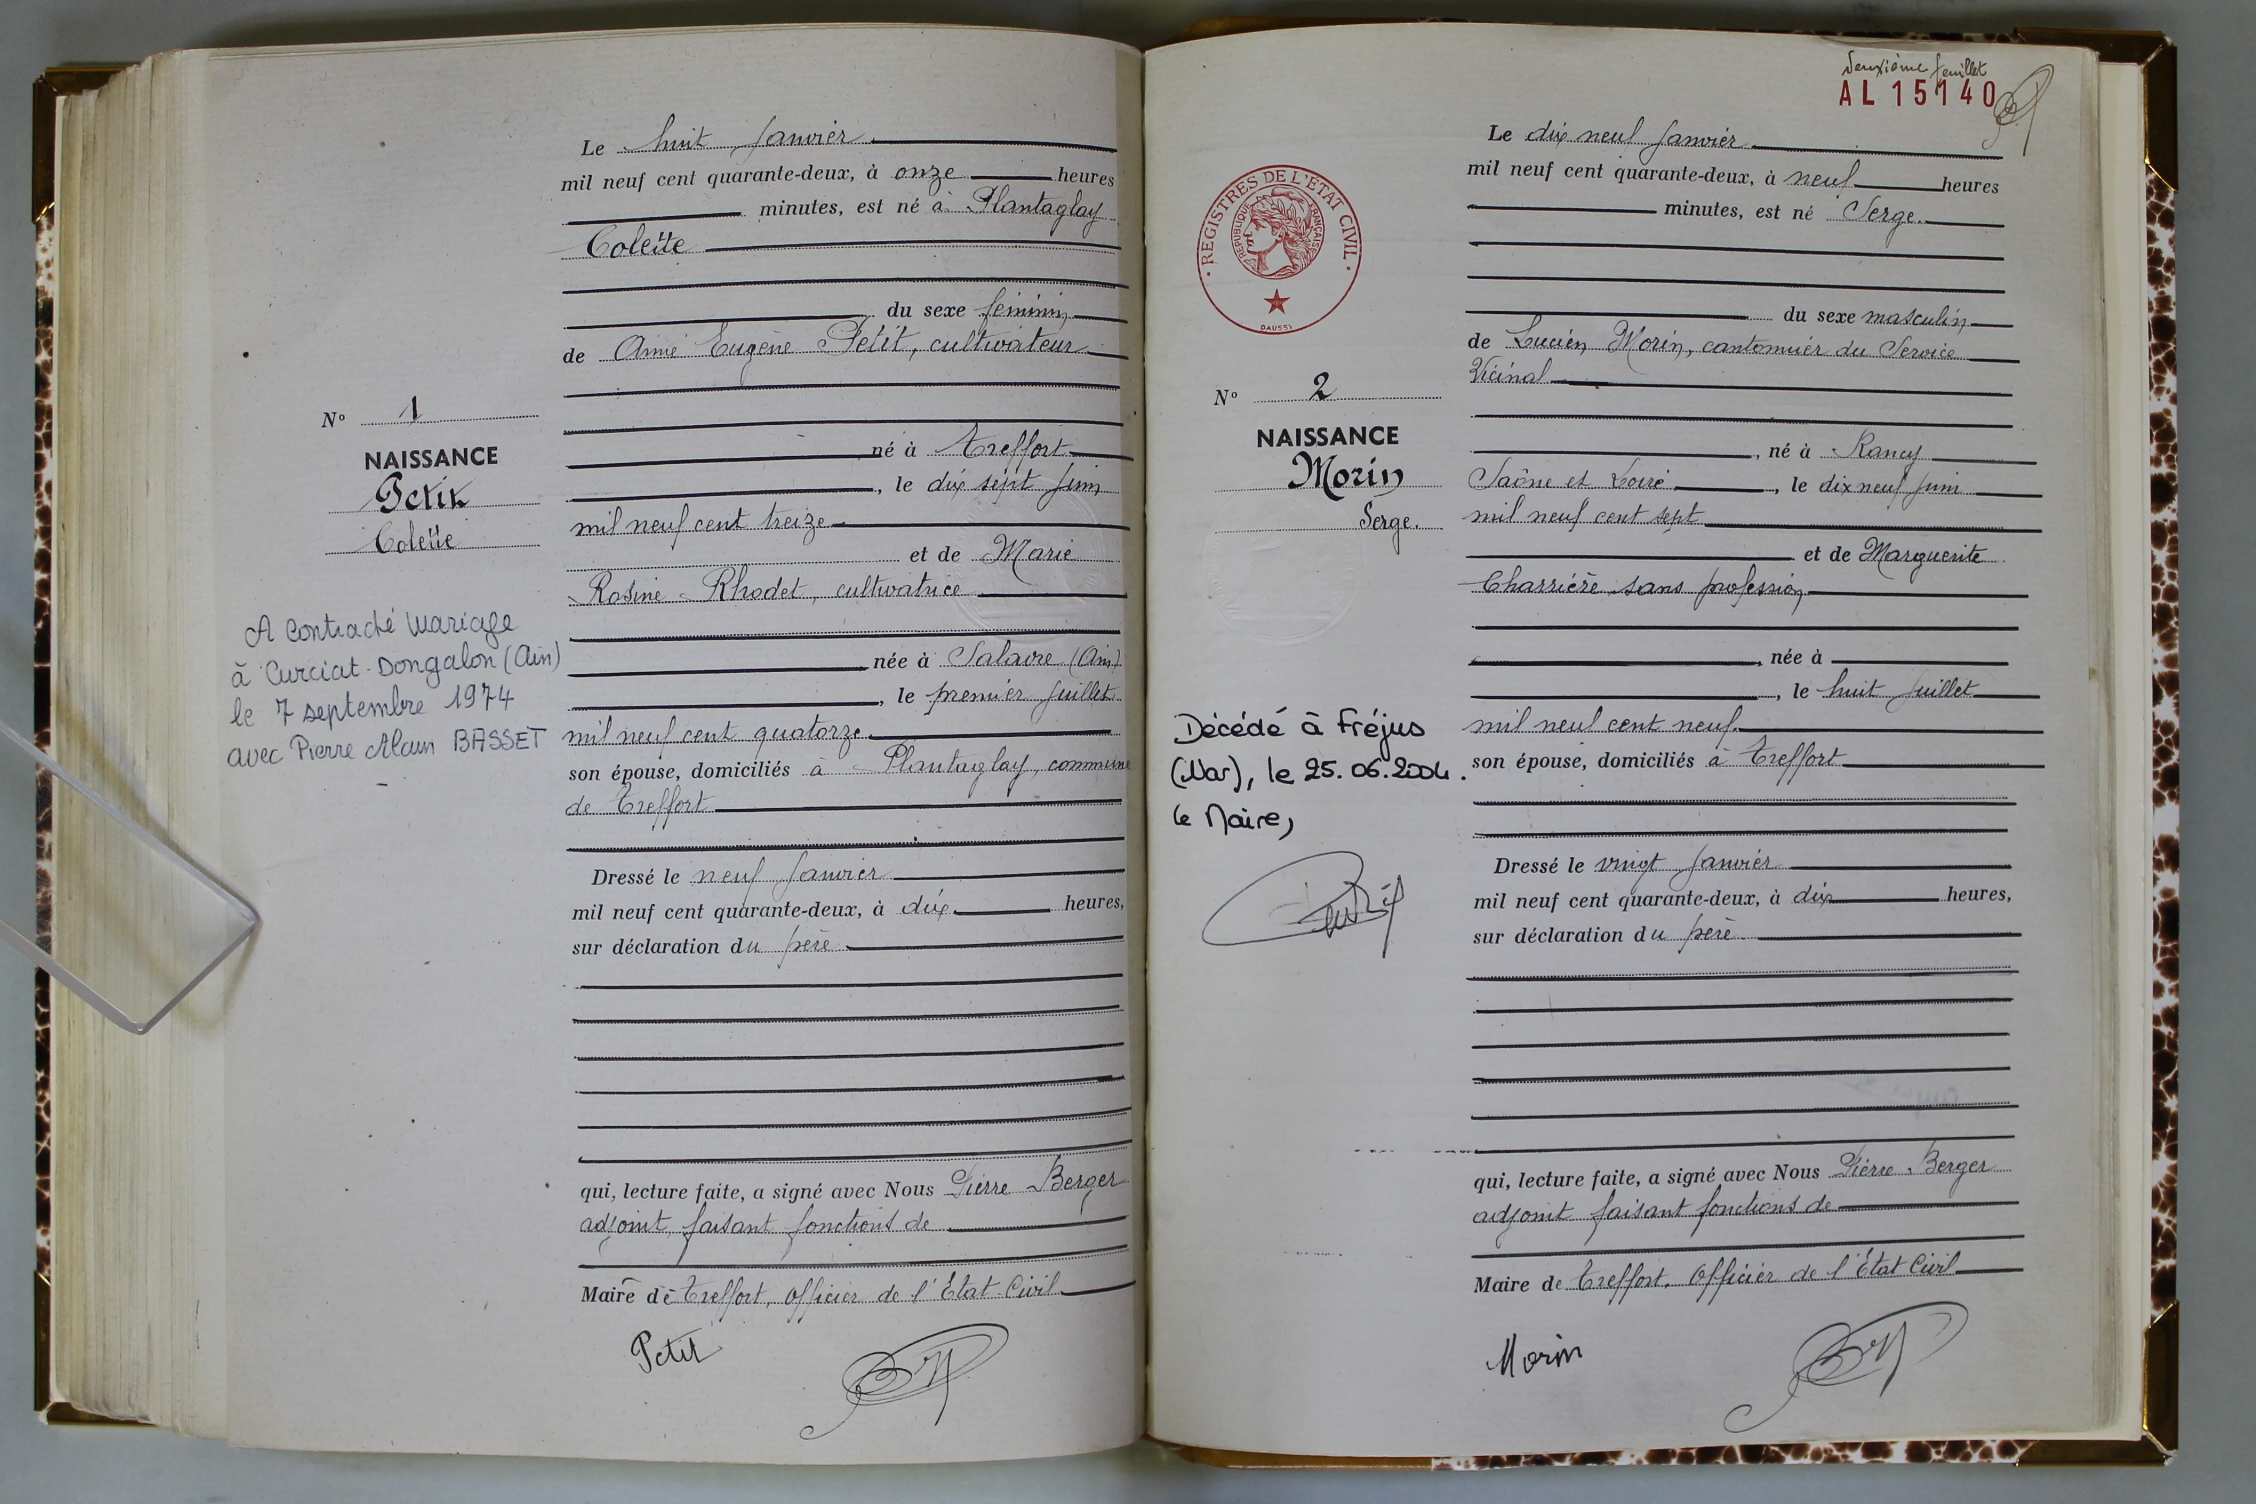 Le huit Janvier
mil neuf cent quarante-deux, à onze heures
minutes, est né à Plantaglay
Colette
du sexe féminin
de Aimé Eugène Petit, cultivateur
né à Treffort
, le dix sept Juin
mil neuf cent treize
et de Marie
Rosine Rhodet, cultivatrice
née à Salavre (Ain)
, le premier Juillet
mil neuf cent quatorze
son épouse, domiciliés à Plantaglay, commune
de Treffort
Dressé le neuf Janvier
mil neuf cent quarante-deux, à dix heures,
sur déclaration du père
qui, lecture faite, a signé avec Nous Pierre Berger
adjoint faisant fonctions de
Maire de Treffort, Officier de l'Etat-Civil
Petit
N° 1
NAISSANCE
Petit
Colette
A contracté mariage
à Curciat-Dongalon (Ain)
le 7 septembre 1974
avec Pierre Alain BASSET
deuxième feuillet
AL 15140
REGISTRES DE L'ÉTAT CIVIL
RÉPUBLIQUE FRANÇAISE
DAUSSY
N° 2
NAISSANCE
Morin
Serge.
Décédé à Fréjus
(Var), le 25.06.2004.
Le Maire,
Le dix neuf Janvier
mil neuf cent quarante-deux, à neuf heures
minutes, est né Serge.
du sexe masculin
de Lucien Morin, cantonnier du Service
Vicinal
, né à Rancy
Saône et Loire, le dix neuf Juin
mil neuf cent sept
et de Marguerite
Charrière sans profession
, née à
, le huit Juillet
mil neuf cent neuf.
son épouse, domiciliés à Treffort
Dressé le vingt Janvier
mil neuf cent quarante-deux, à dix heures,
sur déclaration du père
qui, lecture faite, a signé avec Nous Pierre Berger
adjoint faisant fonctions de
Maire de Treffort, Officier de l'Etat Civil
Morin